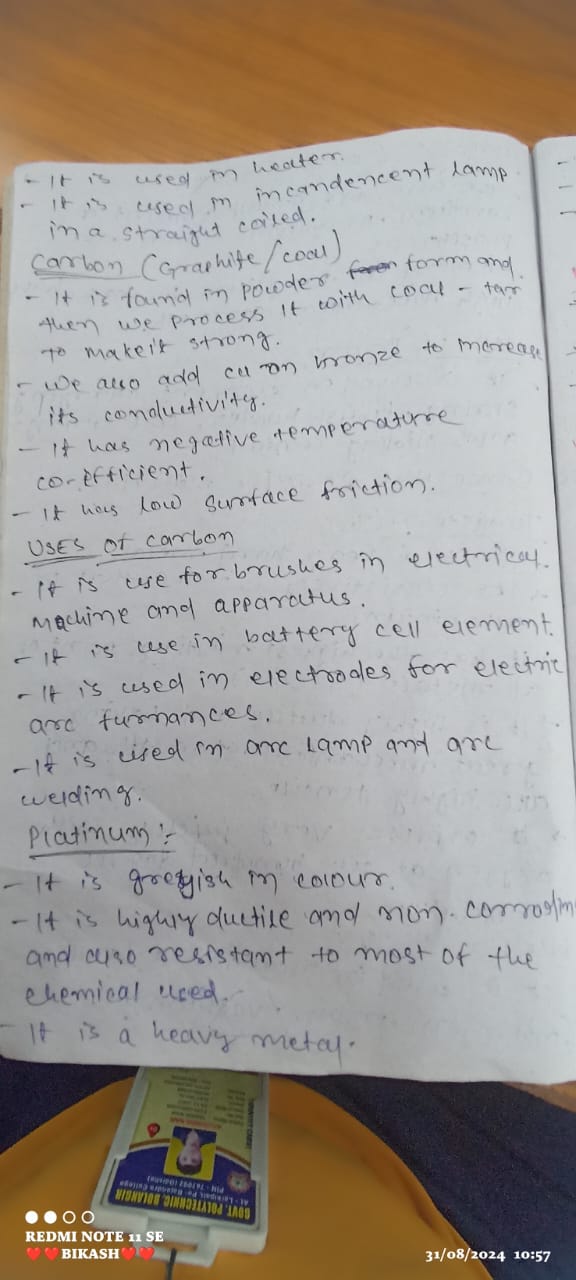 - It is used in heater.
- It is used in incandencent lamp
in a straight coiled.
Carbon (Graphite/coal)
- It is found in powder form and
then we process it with coal - tar
to make it strong.
- we also add cu on bronze to increase
its conductivity.
- It has negative temperature
co-efficient.
- It has low surface friction.
Uses of carbon
- It is use for brushes in electrical
Machine and apparatus.
- It is use in battery cell element.
- It is used in electrodes for electric
arc furnances.
- It is used in arc lamp and arc
welding.
Platinum :-
- It is greyish in colour.
- It is highly ductile and non-corrosin
and also resistant to most of the
chemical used.
- It is a heavy metal.
GOVT. POLYTECHNIC, BOLANGIR
PIN - 767002 (Odisha)
IDENTITY CARD
REDMI NOTE 11 SE
❤️❤️BIKASH❤️❤️
31/08/2024 10:57